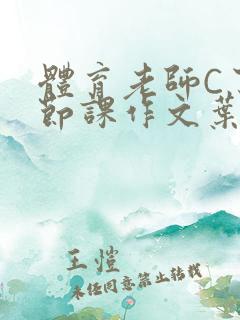 體育老師C
節課作文葉
王愷
未经同意禁止转载